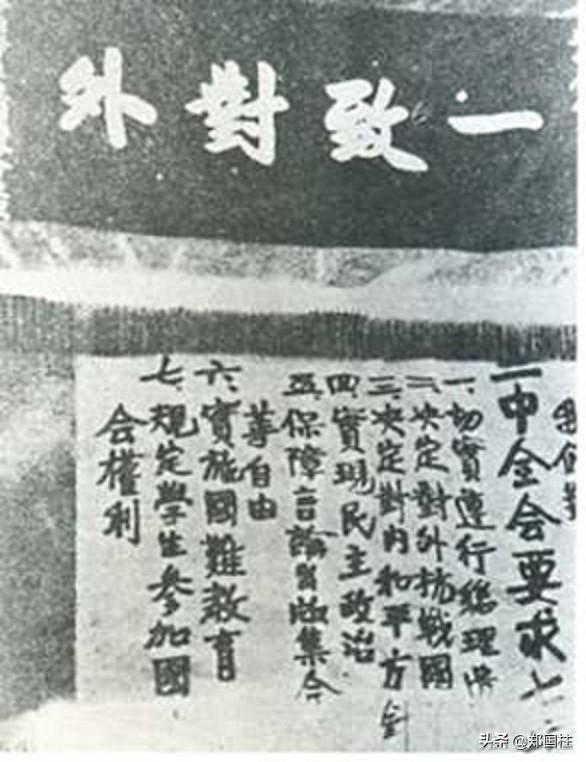 一致對外
中全会要求七
一、切實遵行總理
二、决定對外抗戰國
三、决定對内和平方針
四、實現民主政治
五、保障言論出版集会
等自由
六、實施國難教育
七、規定學生參加國
会權利
头条 @郑国柱